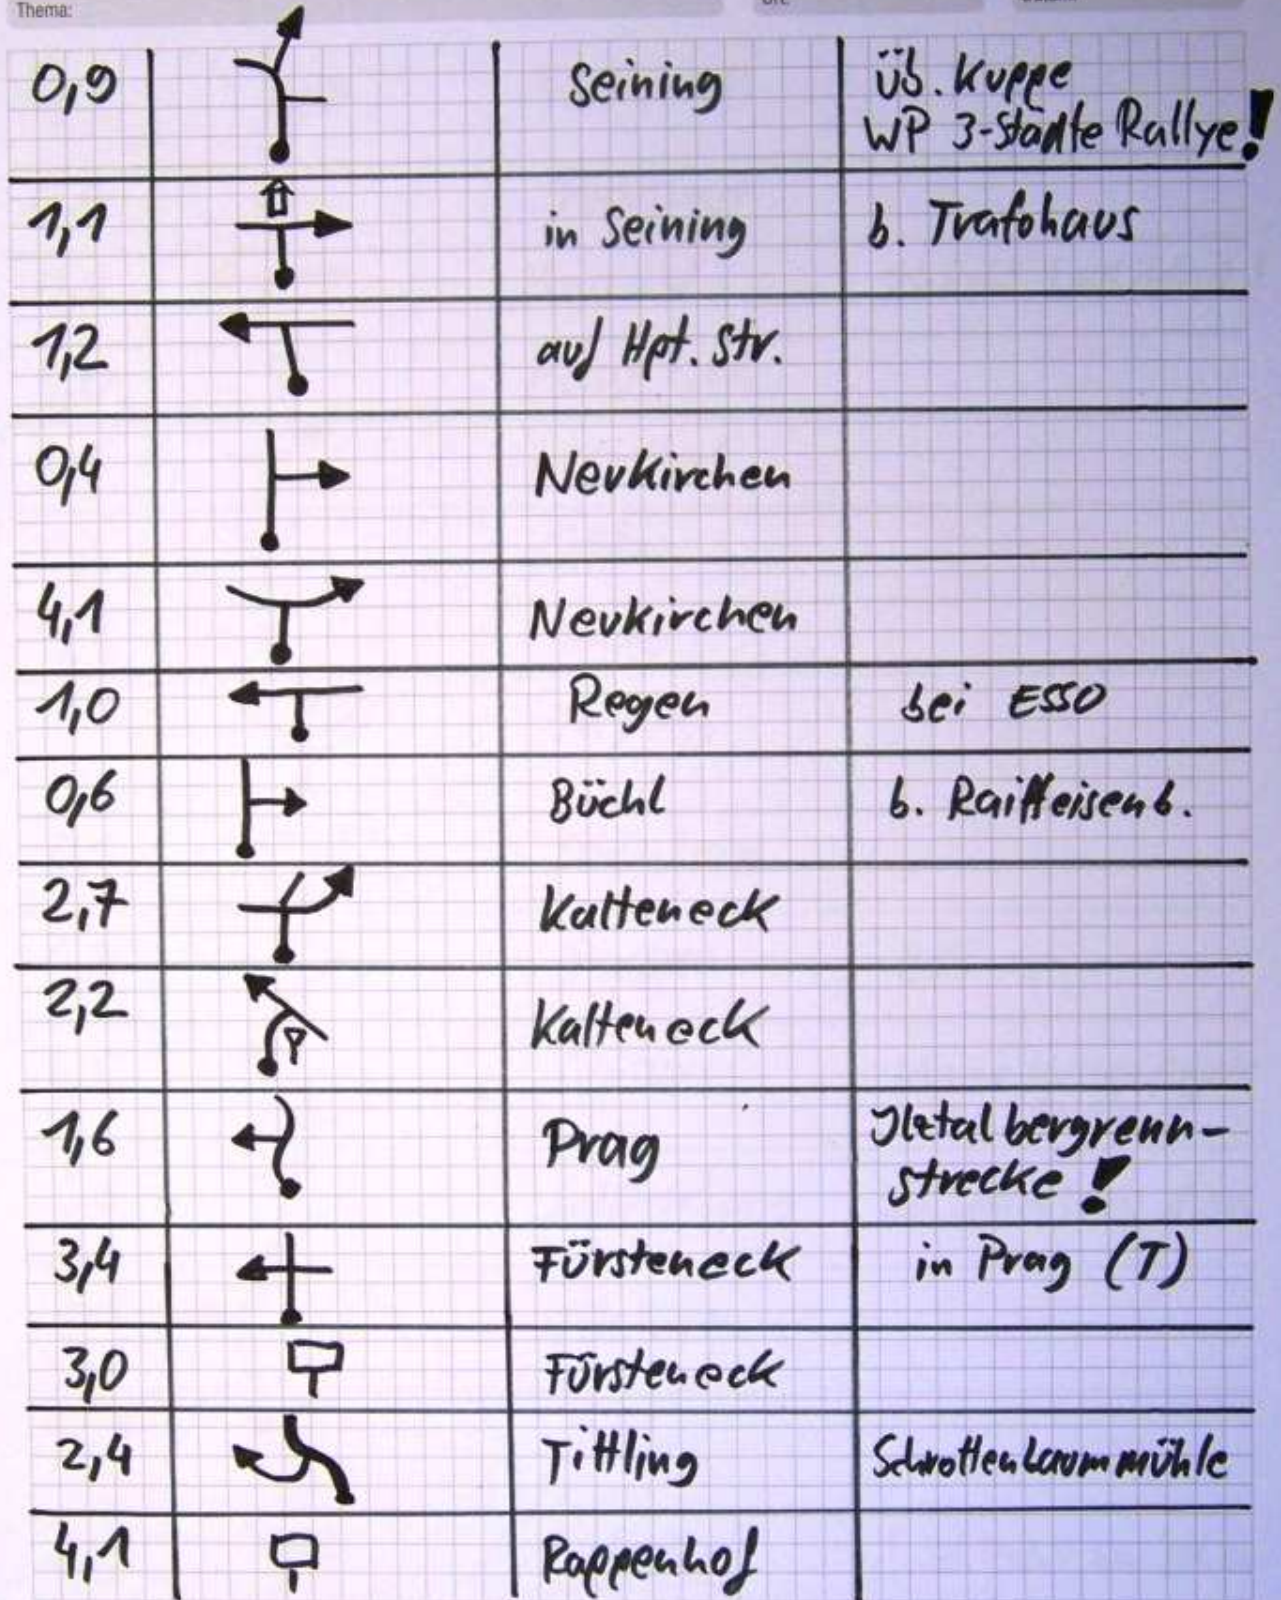 Thema:
0,9 Seining üb. Kuppe
WP 3-Städte Rallye!
1,1 in Seining b. Trafohaus
1,2 auf Hpt. Str.
0,4 Neukirchen
4,1 Neukirchen
1,0 Regen bei ESSO
0,6 Büchl b. Raiffeisenb.
2,7 Kalteneck
2,2 Kalteneck
1,6 Prag Ilztalbergrenn-
strecke!
3,4 Fürsteneck in Prag (T)
3,0 Fürsteneck
2,4 Tittling Schrottenbaummühle
4,1 Rappenhof